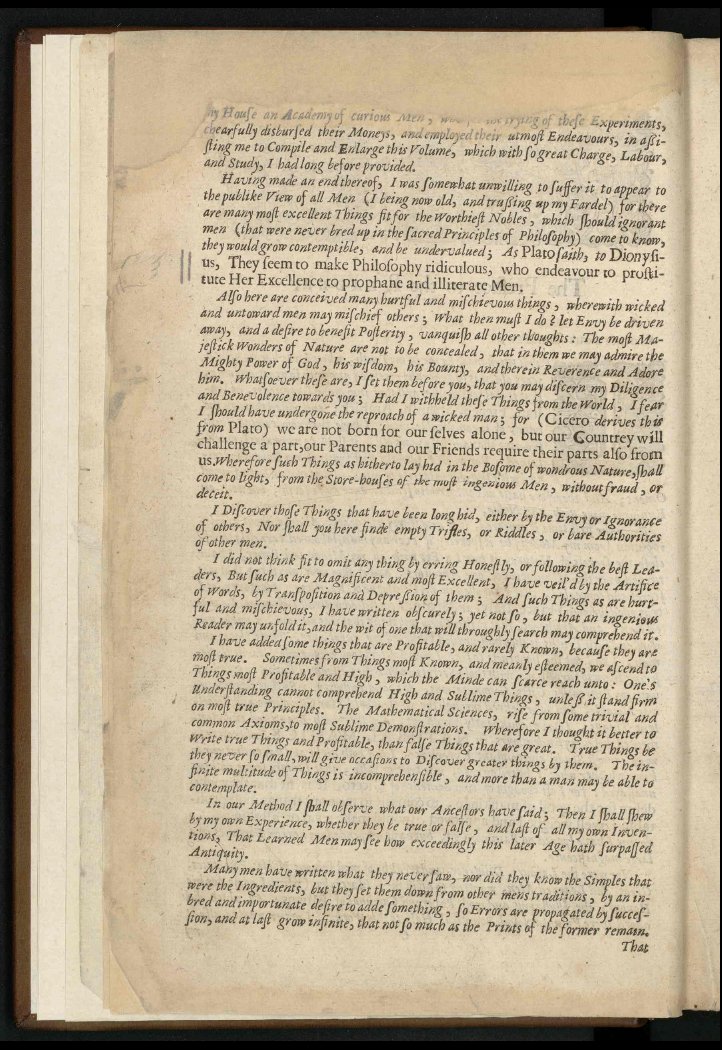 my Houſe an Academy of curious Men, trying of theſe Experiments,
chearfully disburſed their Moneys, and employed their utmoſt Endeavours, in aßi-
ſting me to Compile and Enlarge this Volume, which with ſo great Charge, Labour,
and Study, I had long before provided.
Having made an end thereof, I was ſomewhat unwilling to ſuffer it to appear to
the publike View of all Men (I being now old, and trußing up my Fardel) for there
are many moſt excellent Things fit for the Worthieſt Nobles, which ſhould ignorant
men (that were never bred up in the ſacred Principles of Philoſophy) come to know,
they would grow contemptible, and be undervalued; As Plato ſaith, to Dionyſi-
us, They ſeem to make Philoſophy ridiculous, who endeavour to proſti-
tute Her Excellence to prophane and illiterate Men.
Alſo here are conceived many hurtful and miſchievous things, wherewith wicked
and untoward men may miſchief others; What then muſt I do? let Envy be driven
away, and a deſire to benefit Poſterity, vanquiſh all other thoughts: The moſt Ma-
jeſtick Wonders of Nature are not to be concealed, that in them we may admire the
Mighty Power of God, his wiſdom, his Bounty, and therein Reverence and Adore
him. Whatſoever theſe are, I ſet them before you, that you may diſcern my Diligence
and Benevolence towards you; Had I withheld theſe Things from the World, I fear
I ſhould have undergone the reproach of a wicked man; for (Cicero derives this
from Plato) we are not born for our ſelves alone, but our Countrey will
challenge a part, our Parents and our Friends require their parts alſo from
us. Wherefore ſuch Things as hitherto lay hid in the Boſome of wondrous Nature, ſhall
come to light, from the Store-houſes of the moſt ingenious Men, without fraud, or
deceit.
I Diſcover thoſe Things that have been long hid, either by the Envy or Ignorance
of others, Nor ſhall you here finde empty Trifles, or Riddles, or bare Authorities
of other men.
I did not think fit to omit any thing by erring Honeſtly, or following the beſt Lea-
ders, But ſuch as are Magnificent and moſt Excellent, I have veil'd by the Artifice
of Words, by Tranſpoſition and Depreßion of them; And ſuch Things as are hurt-
ful and miſchievous, I have written obſcurely; yet not ſo, but that an ingenious
Reader may unfold it, and the wit of one that will throughly ſearch may comprehend it.
I have added ſome things that are Profitable, and rarely Known, becauſe they are
moſt true. Sometimes from Things moſt Known, and meanly eſteemed, we aſcend to
Things moſt Profitable and High, which the Minde can ſcarce reach unto: One's
Underſtanding cannot comprehend High and Sublime Things, unleß it ſtand firm
on moſt true Principles. The Mathematical Sciences, riſe from ſome trivial and
common Axioms, to moſt Sublime Demonſtrations. Wherefore I thought it better to
Write true Things and Profitable, than falſe Things that are great. True Things be
they never ſo ſmall, will give occaſions to Diſcover greater things by them. The in-
finite multitude of Things is incomprehenſible, and more than a man may be able to
contemplate.
In our Method I ſhall obſerve what our Anceſtors have ſaid; Then I ſhall ſhew
by my own Experience, whether they be true or falſe, and laſt of all my own Inven-
tions, That Learned Men may ſee how exceedingly this later Age hath ſurpaſſed
Antiquity.
Many men have written what they never ſaw, nor did they know the Simples that
were the Ingredients, but they ſet them down from other mens traditions, by an in-
bred and importunate deſire to adde ſomething, ſo Errors are propagated by ſucceſ-
ſion, and at laſt grow infinite, that not ſo much as the Prints of the former remain.
That